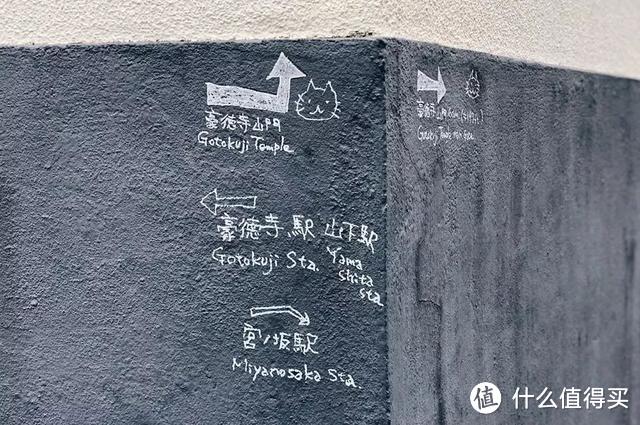 豪徳寺山門
Gotokuji Temple
豪徳寺駅 山下駅
Gotokuji Sta. Yama
shita
sta
宮ノ坂駅
Miyanosaka Sta.
豪徳寺山門
值 什么值得买